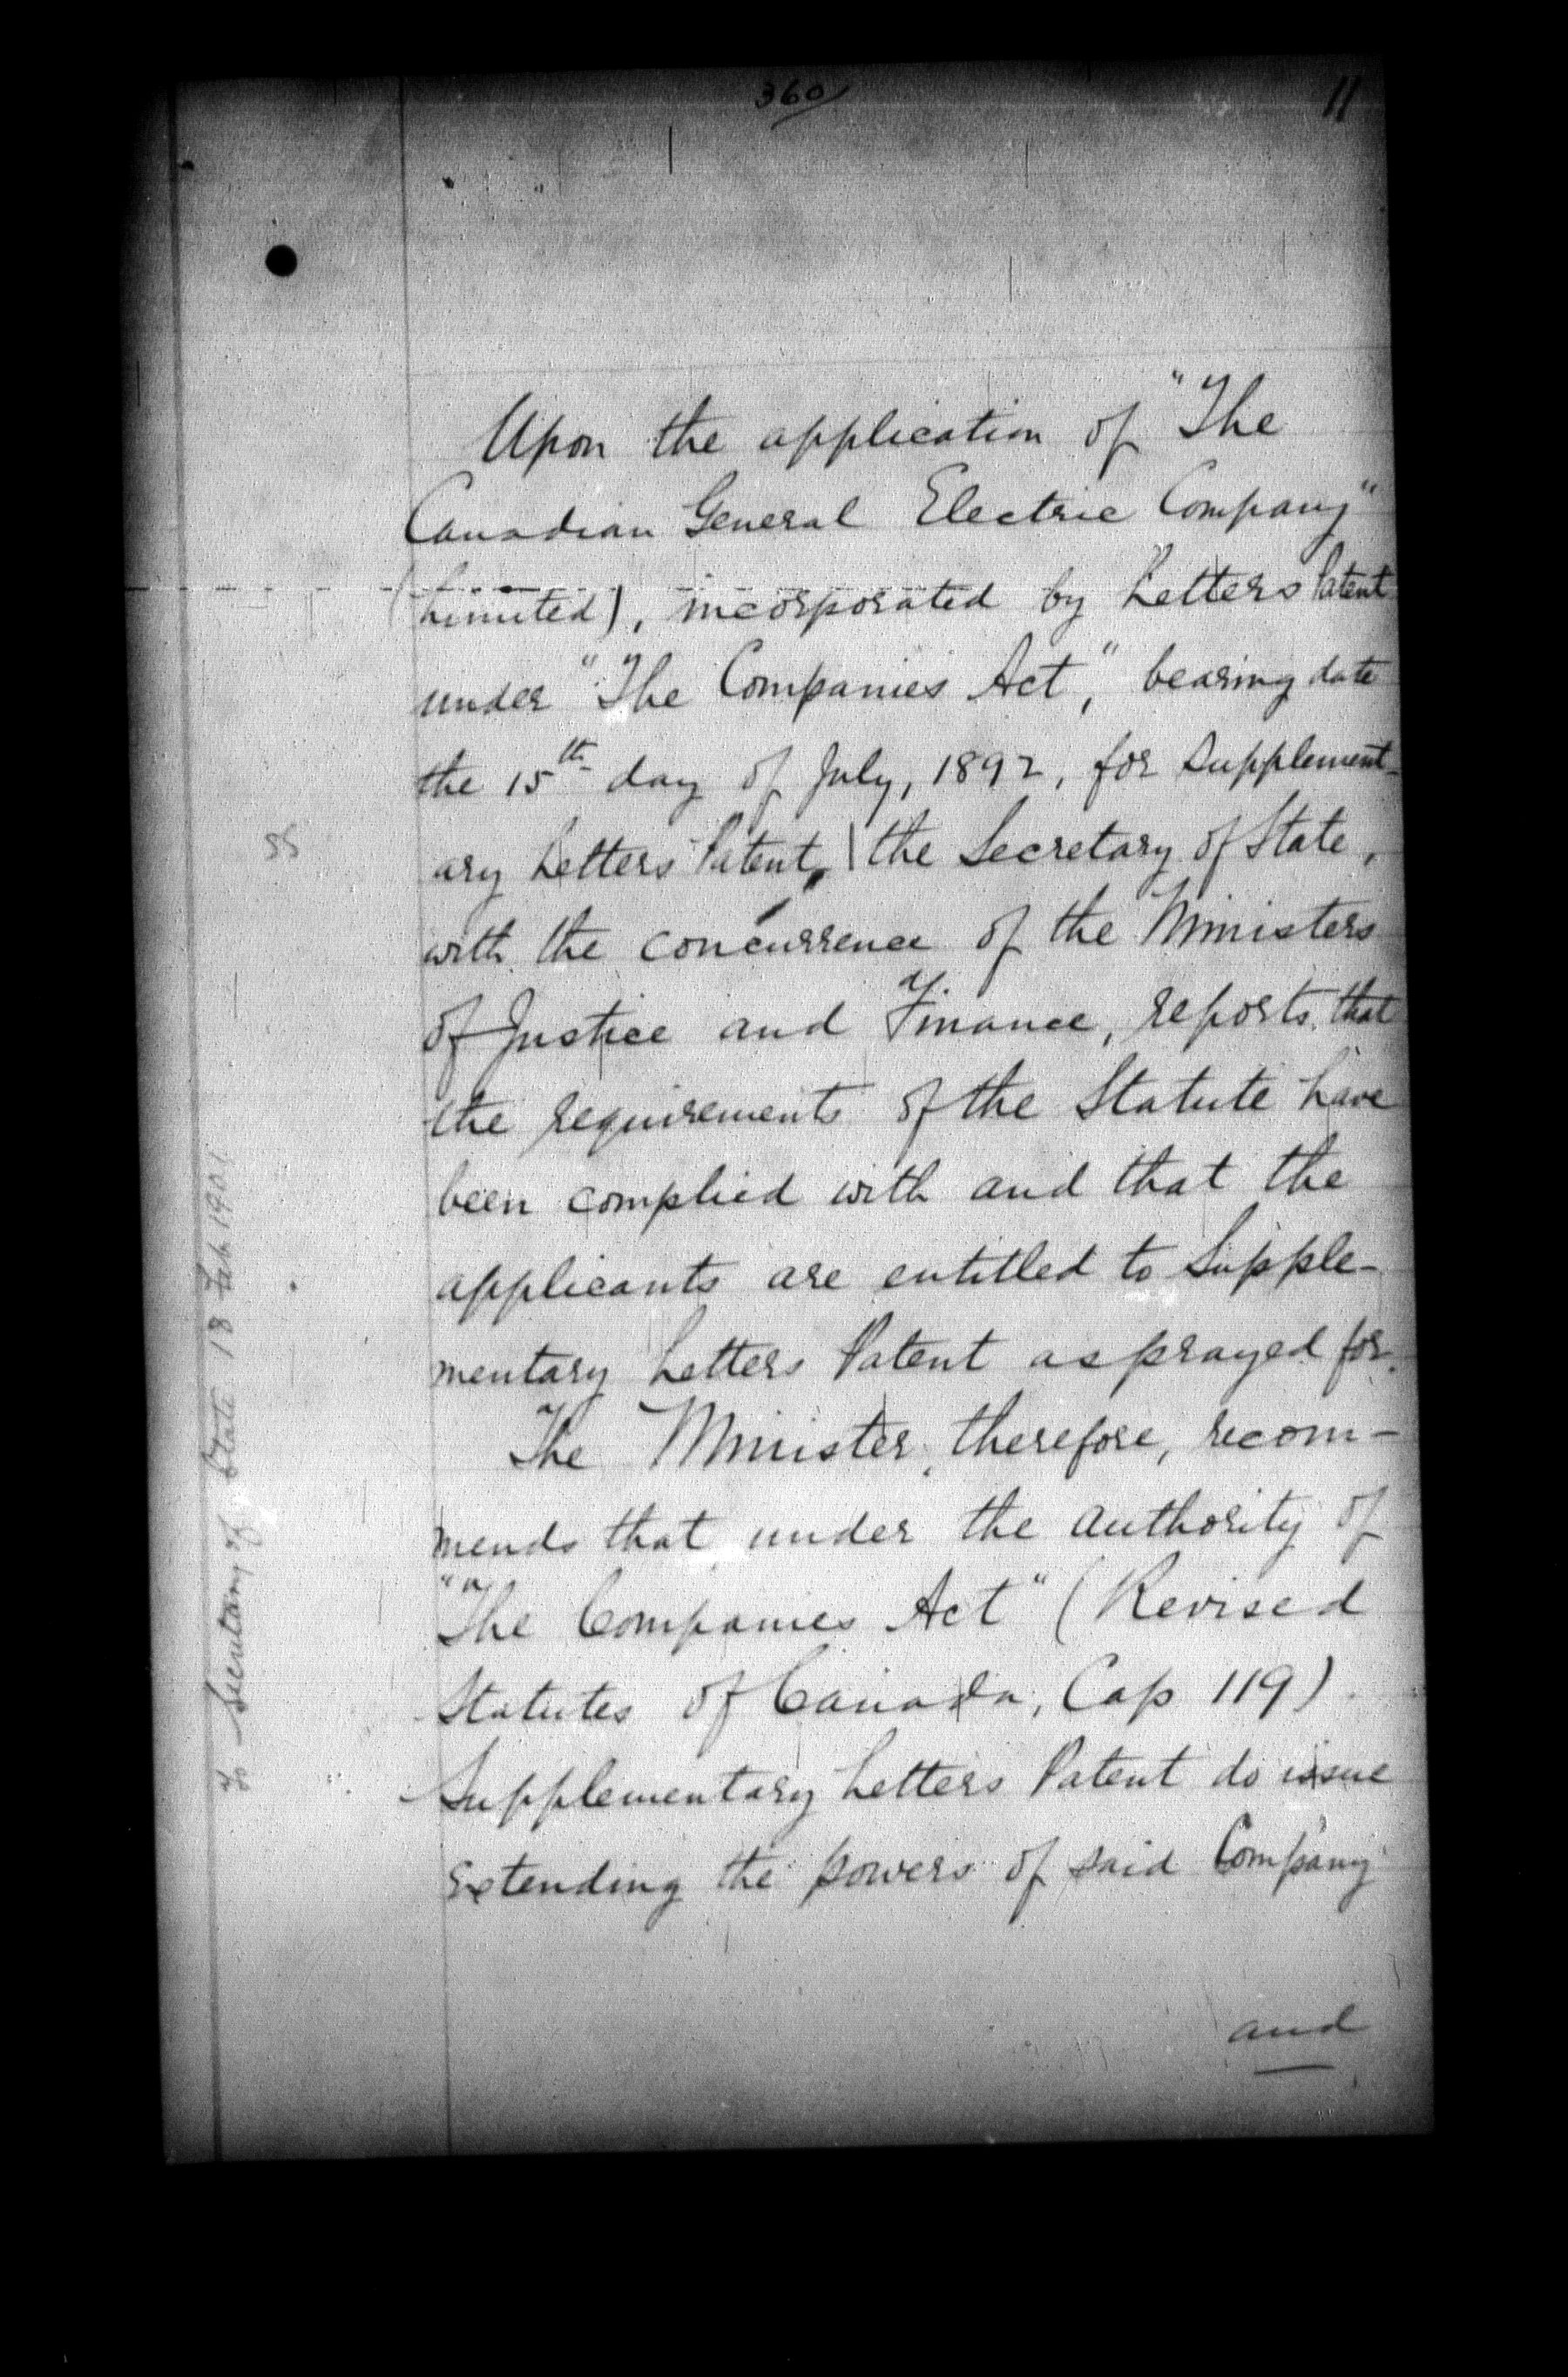 360
11
Upon the application of "The
Canadian General Electric Company"
(Limited), incorporated by Letters Patent
under "The Companies Act," bearing date
the 15th day of July, 1892, for Supplement-
ary Letters Patent, the Secretary of State,
with the concurrence of the Ministers
of Justice and Finance, reports that
the requirements of the Statute have
been complied with and that the
applicants are entitled to Supple-
mentary Letters Patent as prayed for.
The Minister, therefore, recom-
mends that under the authority of
"The Companies Act" (Revised
Statutes of Canada, Cap 119)
Supplementary Letters Patent do issue
extending the powers of said Company
and
SS
To Secretary of State 18 Feb 1901